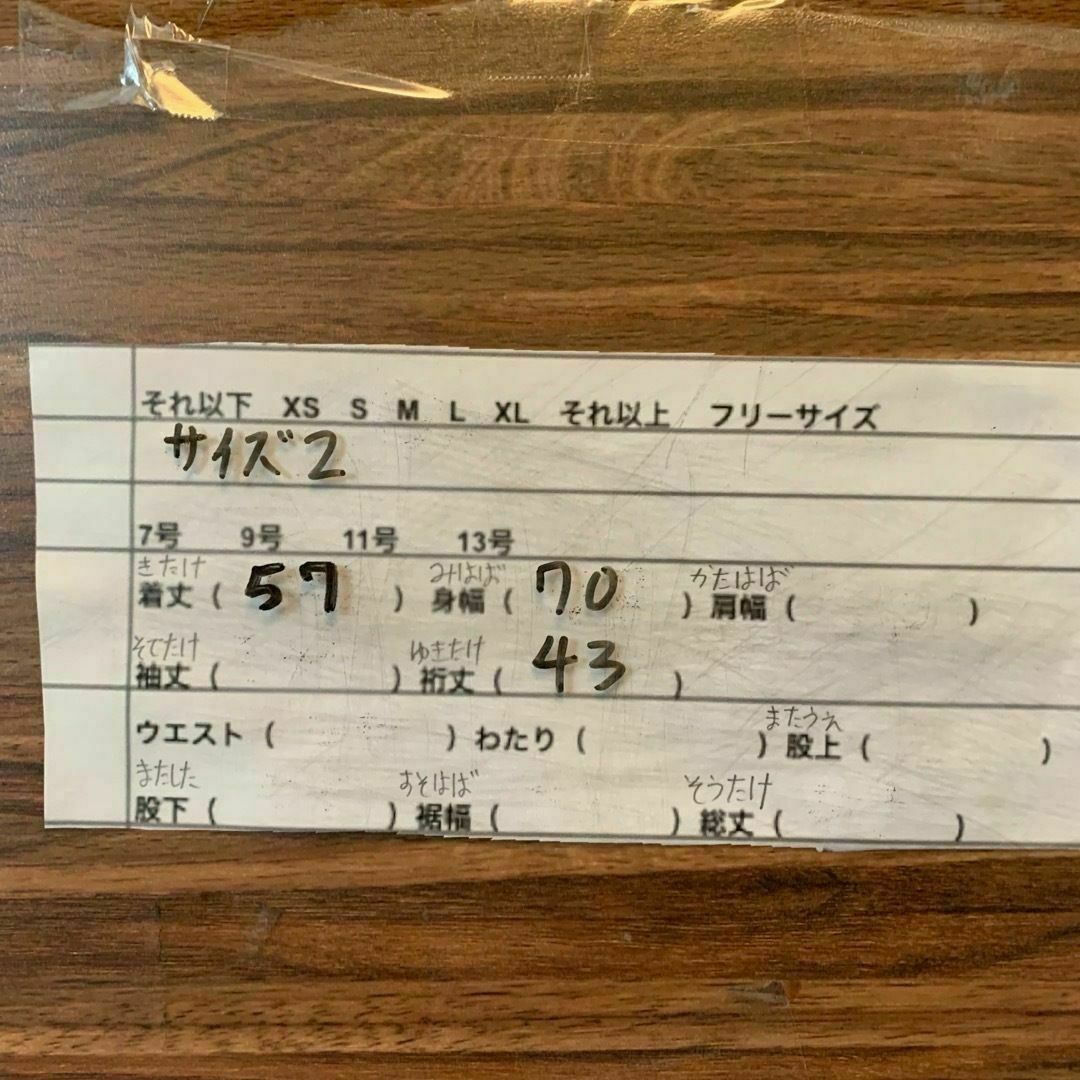 それ以下 XS S M L XL それ以上 フリーサイズ
サイズ2
7号 9号 11号 13号
きたけ みはば かたはば
着丈 ( 57 ) 身幅 ( 70 ) 肩幅 ( )
そでたけ ゆきたけ
袖丈 ( ) 裄丈 ( 43 )
またうえ
ウエスト ( ) わたり ( ) 股上 ( )
またした すそはば そうたけ
股下 ( ) 裾幅 ( ) 総丈 ( )